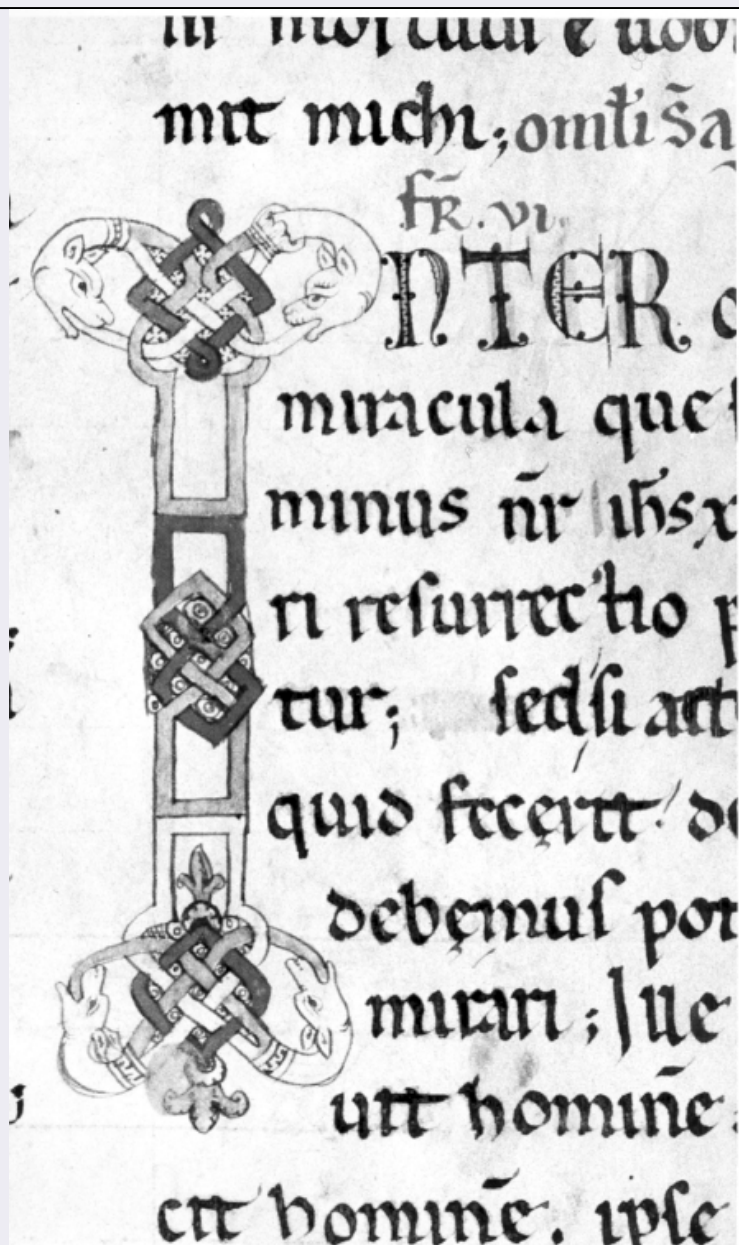 mitt michi; omł̄i s̄a
fr̄. vi.
INTER
miracula que
minus nr̄ ih̄s x
ri resurrectio p
tur; sed si att
quid fecerit de
debęmus pot
mirari; Iue
uit hominē
cit hominē. ipse